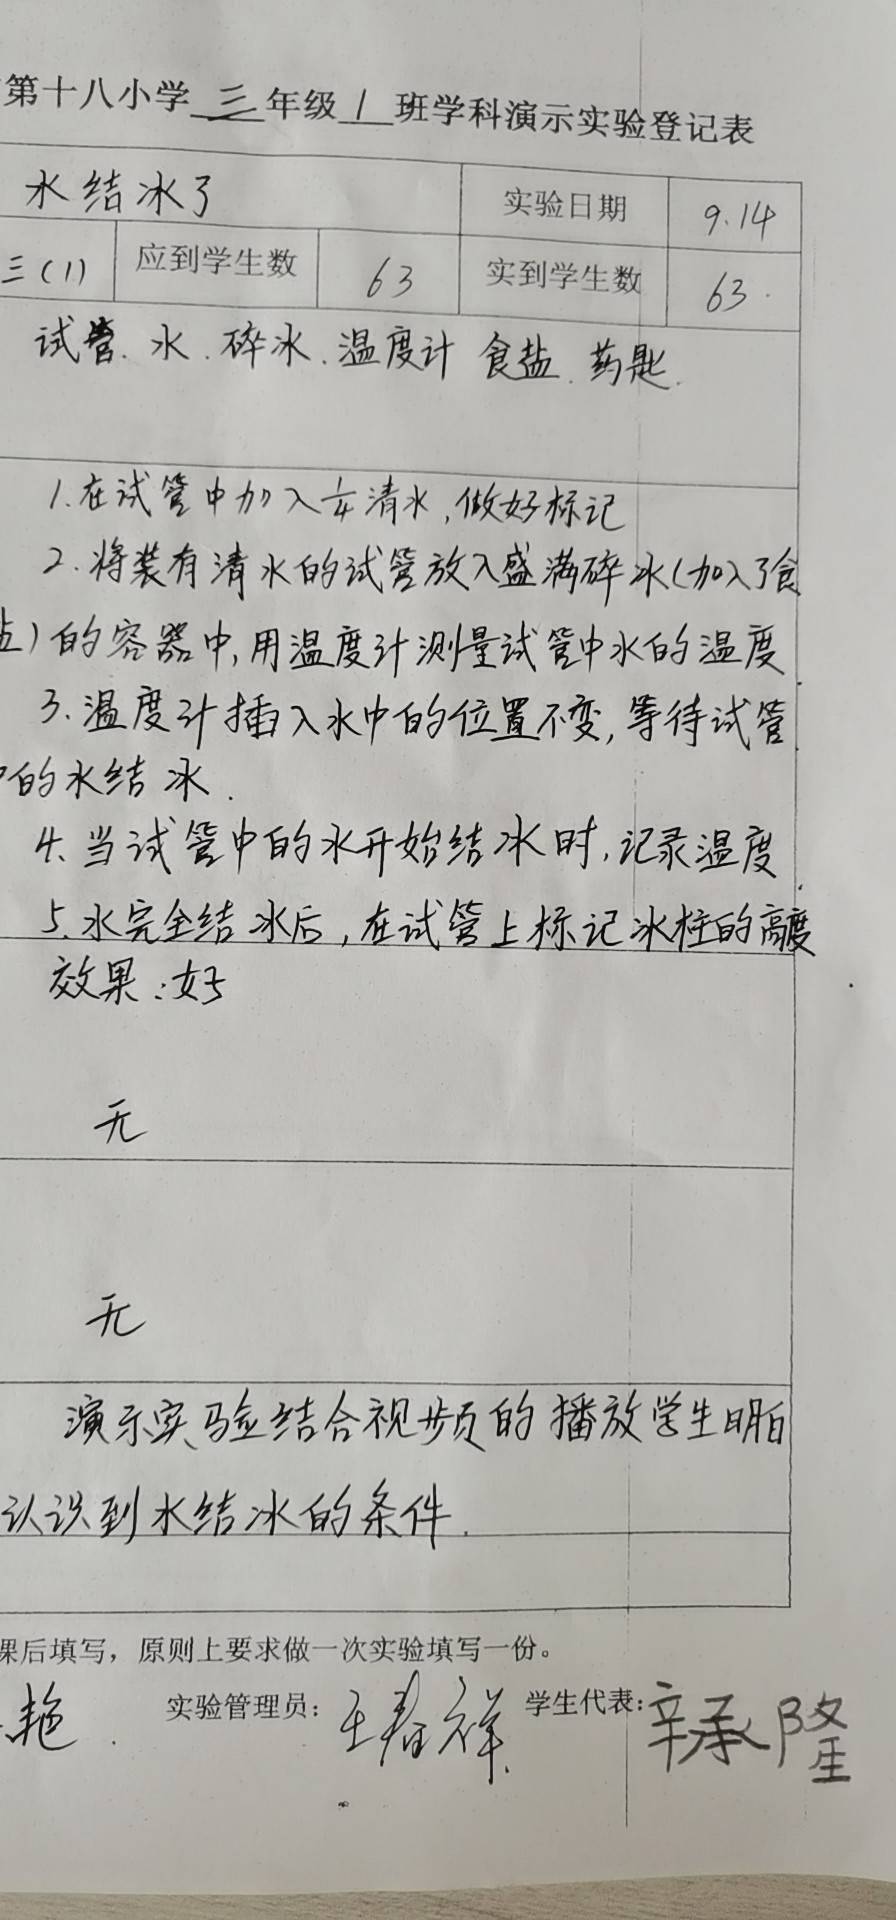 第十八小学三年级1班学科演示实验登记表
水结冰了 实验日期 9.14
三(1) 应到学生数 63 实到学生数 63
试管.水.碎冰.温度计 食盐.药匙.
1.在试管中加入1/4清水,做好标记
2.将装有清水的试管放入盛满碎冰(加入了食
盐)的容器中,用温度计测量试管中水的温度
3.温度计插入水中的位置不变,等待试管
中的水结冰.
4.当试管中的水开始结冰时,记录温度
5.水完全结冰后,在试管上标记冰柱的高度
效果:好
无
无
演示实验结合视频的播放学生明白
认识到水结冰的条件.
课后填写，原则上要求做一次实验填写一份。
艳 实验管理员：王春祥 学生代表：辛承隆